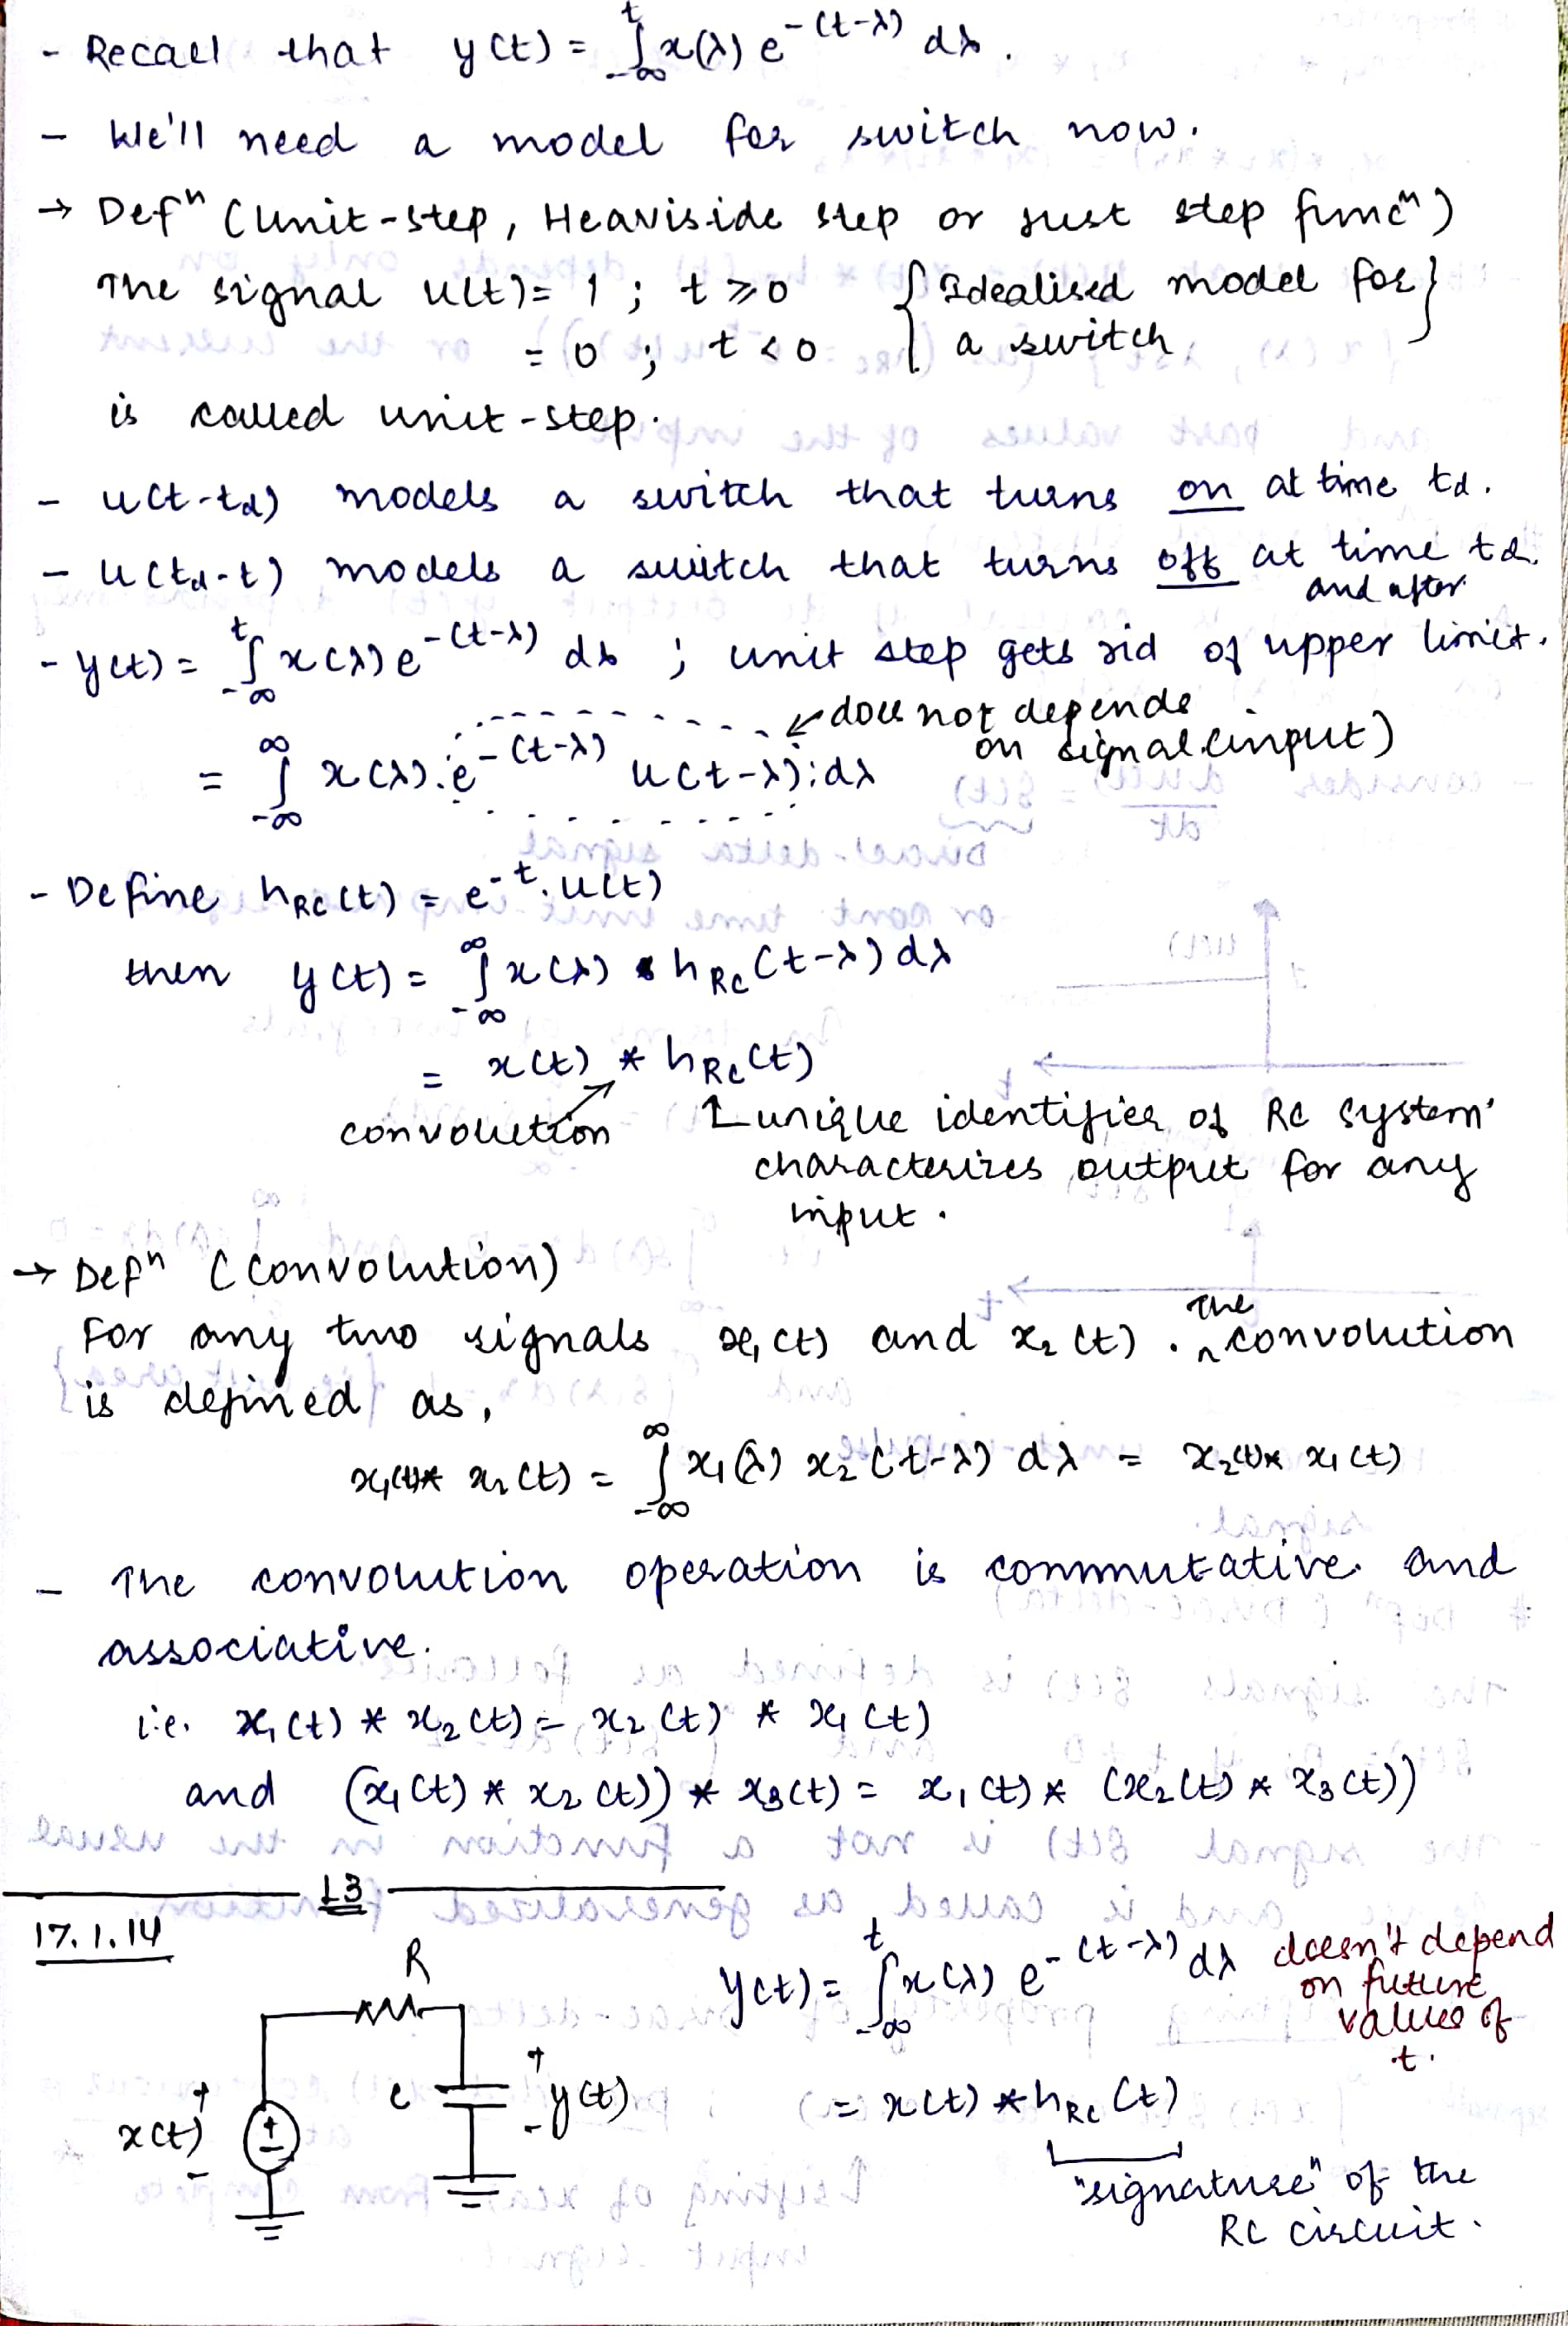 - Recall that y(t) = ∫_{-∞}^{t} x(λ) e^{-(t-λ)} dλ.
- We'll need a model for switch now.
→ Defⁿ (Unit-step, Heaviside step or just step funcⁿ)
The signal u(t) = 1 ; t ≥ 0 { Idealised model for }
= 0 ; t < 0 { a switch
is called unit-step.
- u(t-t_d) models a switch that turns on at time t_d.
- u(t_d-t) models a switch that turns off at time t_d.
and after
- y(t) = ∫_{-∞}^{t} x(λ) e^{-(t-λ)} dλ ; unit step gets rid of upper limit.
= ∫_{-∞}^{∞} x(λ). e^{-(t-λ)} u(t-λ) dλ ↙ does not depends
on signal (input)
- Define h_RC(t) = e^{-t}. u(t)
then y(t) = ∫_{-∞}^{∞} x(λ) h_RC(t-λ) dλ
= x(t) * h_RC(t)
convolution ↑ unique identifier of RC system
characterizes output for any
input.
→ Defⁿ (Convolution)
For any two signals x₁(t) and x₂(t). the convolution
is defined as,
x₁(t)* x₂(t) = ∫_{-∞}^{∞} x₁(λ) x₂(t-λ) dλ = x₂(t)* x₁(t)
- The convolution operation is commutative and
associative.
i.e. x₁(t) * x₂(t) = x₂(t) * x₁(t)
and (x₁(t) * x₂(t)) * x₃(t) = x₁(t) * (x₂(t) * x₃(t))
L3
17.1.14
R
y(t) = ∫_{-∞}^{t} x(λ) e^{-(t-λ)} dλ doesn't depend
on future
values of
t.
x(t) + - + - c + y(t) -
= x(t) * h_RC(t)
"signature" of the
RC circuit.